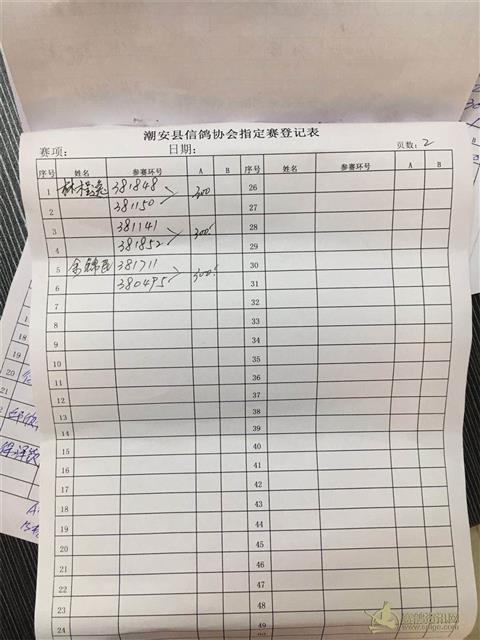 潮安县信鸽协会指定赛登记表
赛项: 日期: 页数: 2
序号 姓名 参赛环号 A B 序号 姓名 参赛环号 A B
1 381848 300 26
2 381150 27
3 381141 300 28
4 381852 29
5 381711 300 30
6 380495 31
7 32
8 33
9 34
10 35
11 36
12 37
13 38
14 39
15 40
16 41
17 42
18 43
19 44
20 45
21 46
22 47
23 48
24 49
18
19
20
21